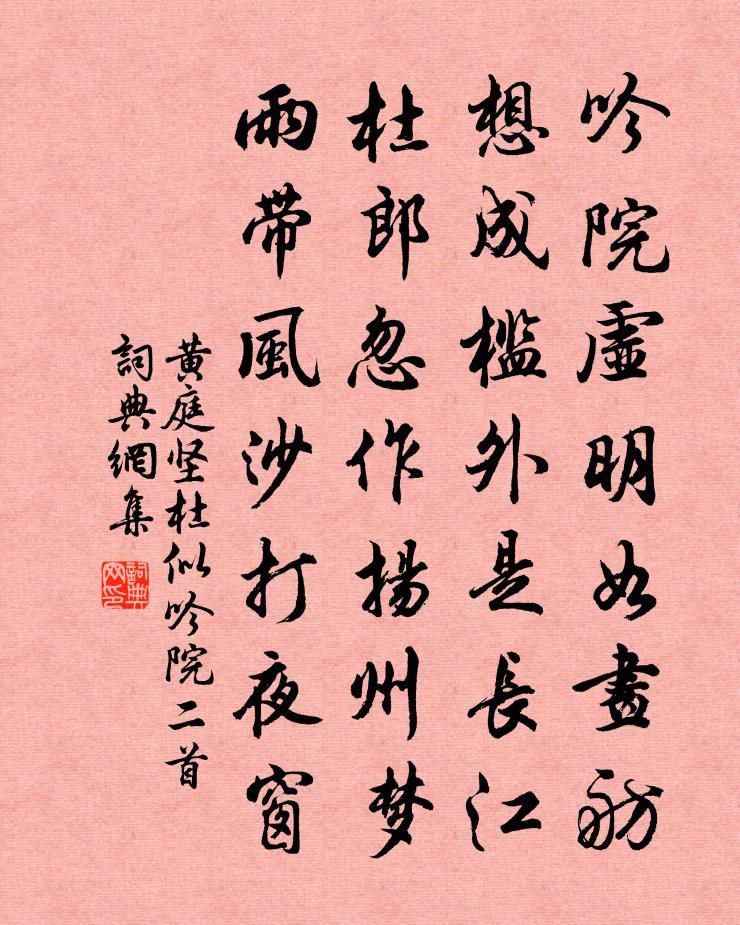 吟院虛明如畫舫
想成檻外是長江
杜郎忽作揚州梦
雨帶風沙打夜窗
黄庭坚杜似吟院二首
詞典網集
詞典网印